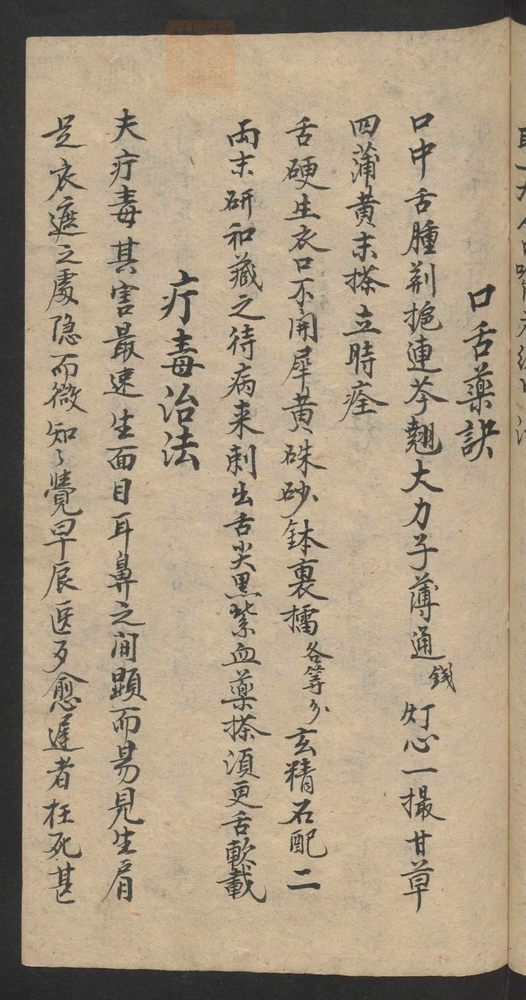 口舌藥訣
口中舌腫荆梔連芩翹大力子薄通錢灯心一撮甘草
四蒲黄末搽立時痊
舌硬生衣口不開犀黄硃砂鉢裏擂各等分玄精石配二
両末研和藏之待病来刺出舌尖黒紫血藥搽湏更舌軟載
疔毒治法
夫疔毒其害最速生面目耳鼻之间顕而易見生肩
足衣遮之處隐而微知〻覺早辰医歹愈遅者枉死甚